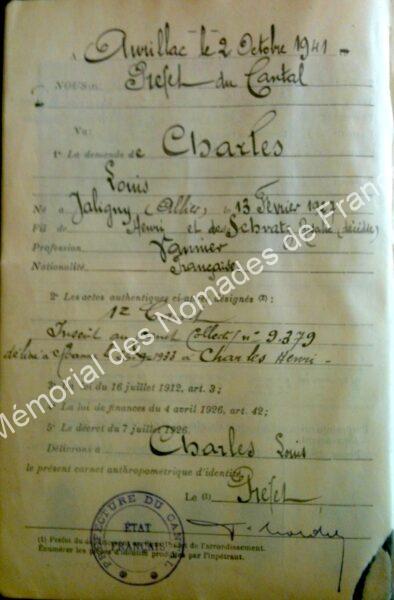 A Aurillac le 2 Octobre 1941
NOUS Préfet du Cantal
Vu:
1° La demande de Charles
Louis
Né à Jaligny (Allier) 13 Février
Fil de Henri et de
Profession Vannier
Nationalité Française
2° Les actes authentiques ci-après désignés (2) :
Inscrit au Carnet Collectif n° 9.379
1933 à Charles Henri
3° La loi du 16 juillet 1912, art. 3 ;
4° La loi de finances du 4 avril 1926, art. 42 ;
5° Le décret du 7 juillet 1926.
Délivrons à Charles Louis
le présent carnet anthropométrique d'identité.
Le (1) Préfet,
PREFECTURE DU CANTAL
ÉTAT
FRANÇAIS
(1) Préfet du l'arrondissement.
Énumérer les pièces d'identité produites par l'impétrant.
Mémorial des Nomades de Fran